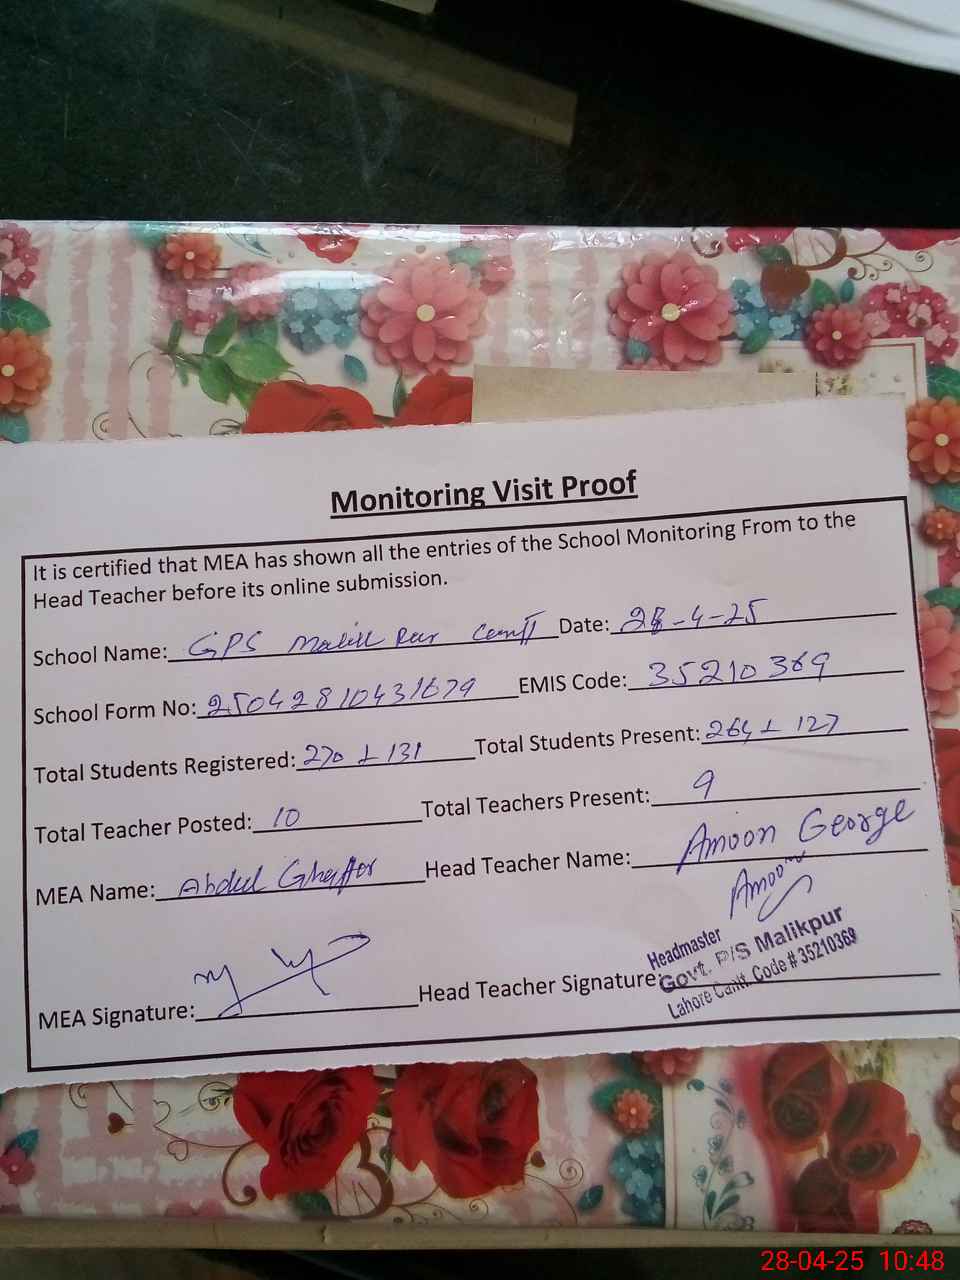 Monitoring Visit Proof
It is certified that MEA has shown all the entries of the School Monitoring From to the
Head Teacher before its online submission.
School Name: GPS Malik Pur Cantt Date: 28-4-25
School Form No: 25042810431679 EMIS Code: 35210369
Total Students Registered: 270 + 131 Total Students Present: 264 + 127
Total Teacher Posted: 10 Total Teachers Present: 9
MEA Name: Abdul Ghaffor Head Teacher Name: Amoon George
Amoon
MEA Signature: Head Teacher Signature:
Headmaster
Govt. P/S Malikpur
Lahore Cantt. Code # 35210369
28-04-25 10:48